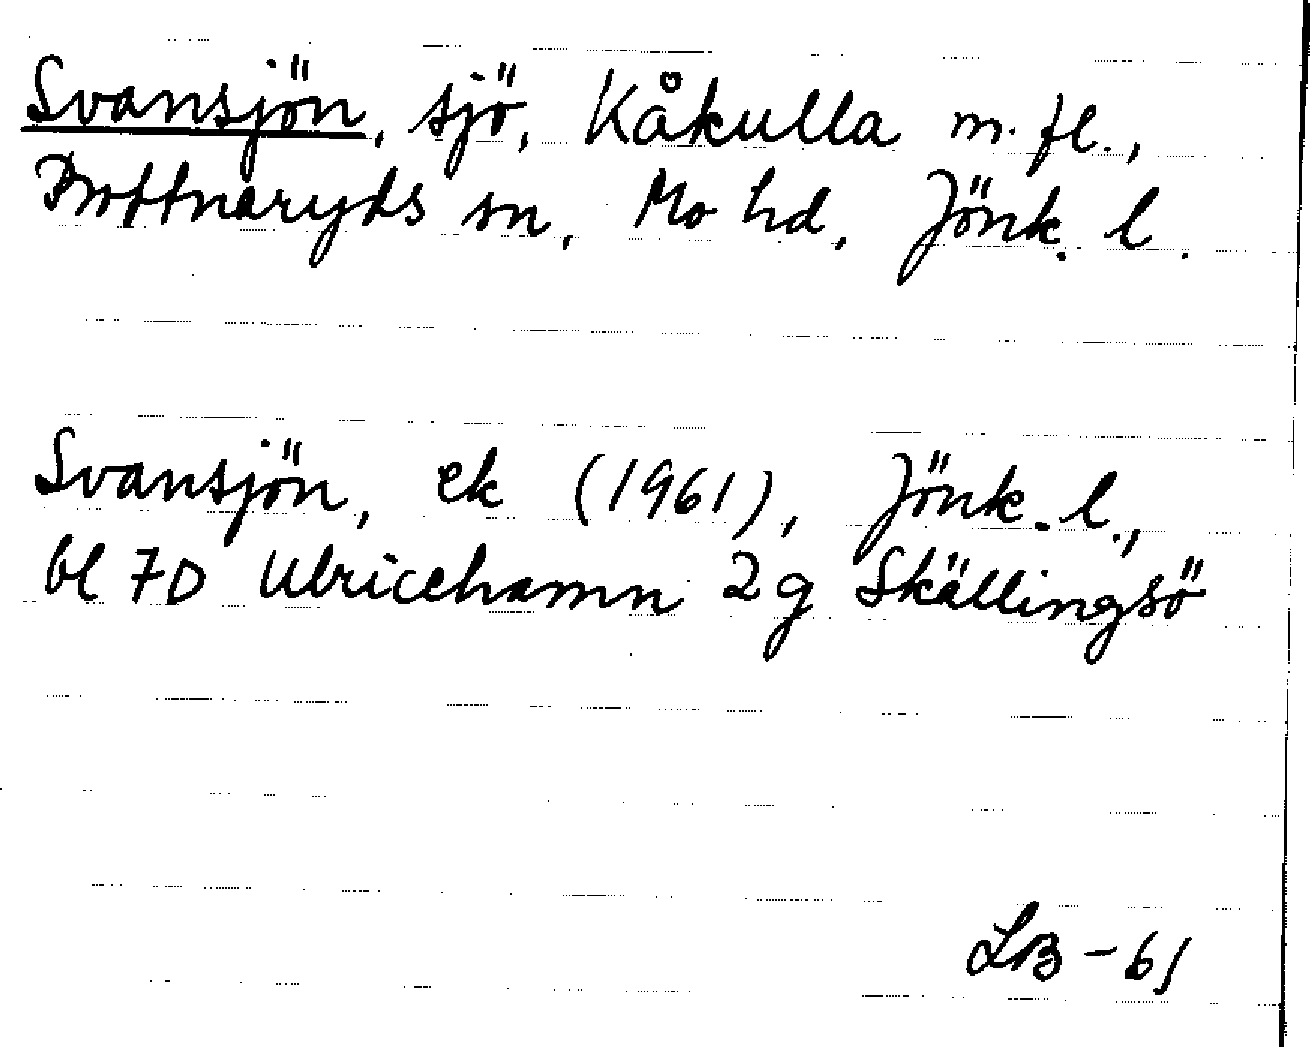 Svansjön, sjö, Kåkulla m. fl.,
Bottnaryds sn, Mo hd, Jönk. l.
Svansjön, ek (1961), Jönk. l.,
bl 7D Ulricehamn 2g Skällingsö
LB - 61